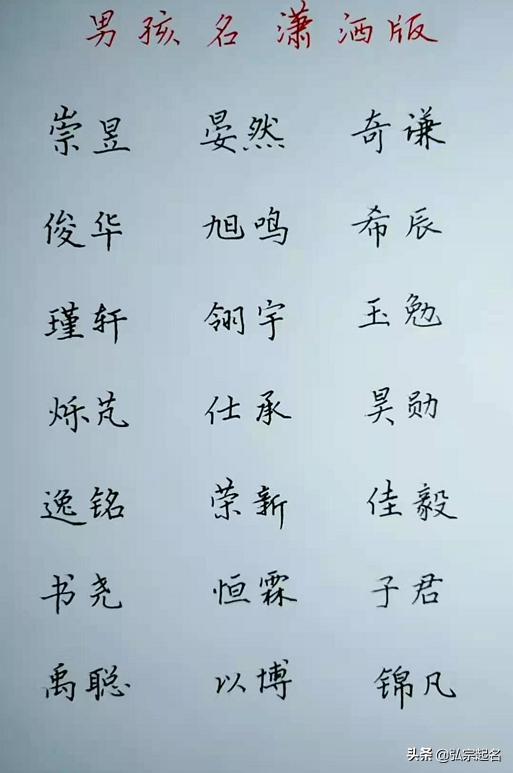 男孩名潇洒版
崇昱 晏然 奇谦
俊华 旭鸣 希辰
瑾轩 翎宇 玉勉
烁芃 仕承 昊勋
逸铭 荣新 佳毅
书尧 恒霖 子君
禹聪 以博 锦凡
头条 @弘宗起名